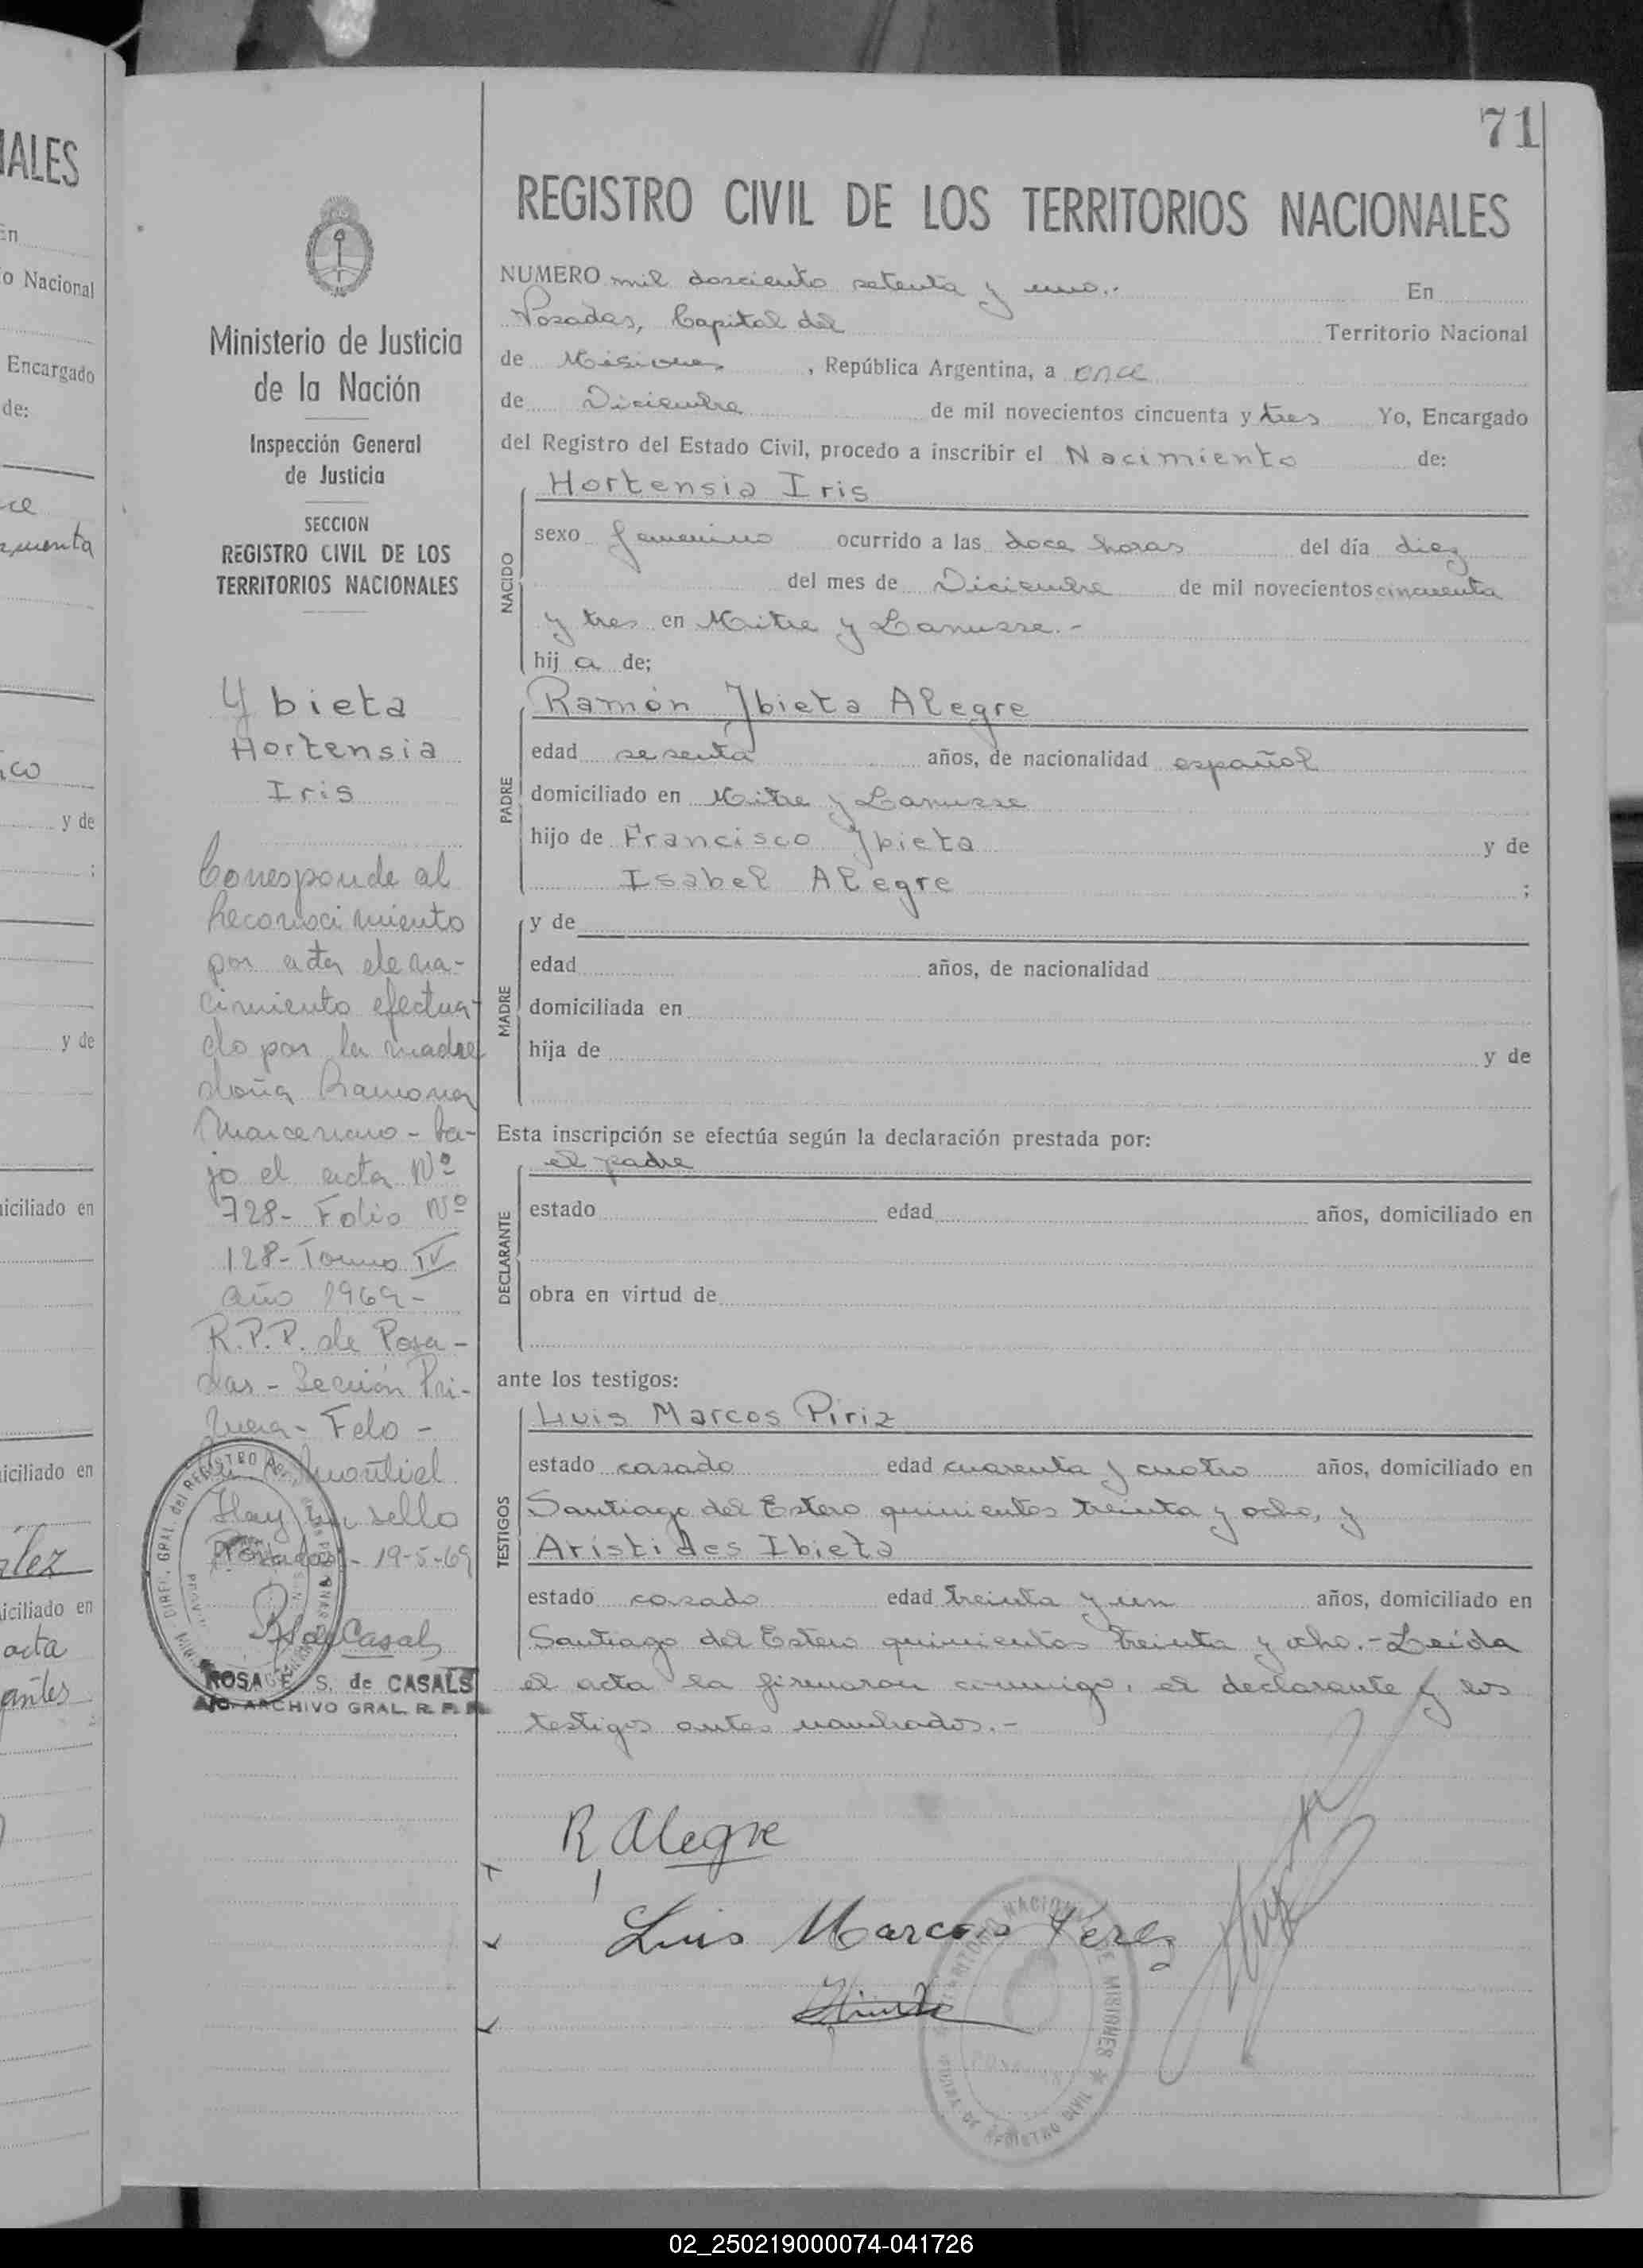 71
REGISTRO CIVIL DE LOS TERRITORIOS NACIONALES
NUMERO mil dosciento setenta y uno.. En
Posadas, Capital del Territorio Nacional
de Misiones, República Argentina, a once
de Diciembre de mil novecientos cincuenta y tres Yo, Encargado
del Registro del Estado Civil, procedo a inscribir el Nacimiento de:
NACIDO
Hortensia Iris
sexo femenino ocurrido a las doce horas del día diez
del mes de Diciembre de mil novecientos cincuenta
y tres en Mitre y Lanusse.-
hij a de;
PADRE
Ramón Ibieta Alegre
edad sesenta años, de nacionalidad español
domiciliado en Mitre y Lanusse
hijo de Francisco Ibieta y de
Isabel Alegre ;
MADRE
y de
edad años, de nacionalidad
domiciliada en
hija de y de
Esta inscripción se efectúa según la declaración prestada por:
DECLARANTE
el padre
estado edad años, domiciliado en
obra en virtud de
ante los testigos:
TESTIGOS
Luis Marcos Piriz
estado casado edad cuarenta y cuatro años, domiciliado en
Santiago del Estero quinientos treinta y ocho, y
Arístides Ibieta
estado casado edad treinta y un años, domiciliado en
Santiago del Estero quinientos treinta y ocho.- Leída
el acta la firmaron conmigo, el declarante y los
testigos antes nombrados.-
R Alegre
Luis Marcos Perez
Ministerio de Justicia
de la Nación
Inspección General
de Justicia
SECCION
REGISTRO CIVIL DE LOS
TERRITORIOS NACIONALES
Ybieta
Hortensia
Iris
Corresponde al
Reconocimiento
por acta de na-
cimiento efectua-
do por la madre
doña Ramona
ba-
jo el acta Nº
728- Folio Nº
128- Tomo IV
año 1969-
R.P.P. de Posa-
das - Sección Pri-
mera - Fdo -
Hay un sello
Posadas - 19-5-69
Rosa Casals
ROSA E. S. de CASALS
A/C. ARCHIVO GRAL. R. P. P.
IALES
En
o Nacional
Encargado
de:
y de
;
y de
niciliado en
niciliado en
niciliado en
acta
antes
02_250219000074-041726